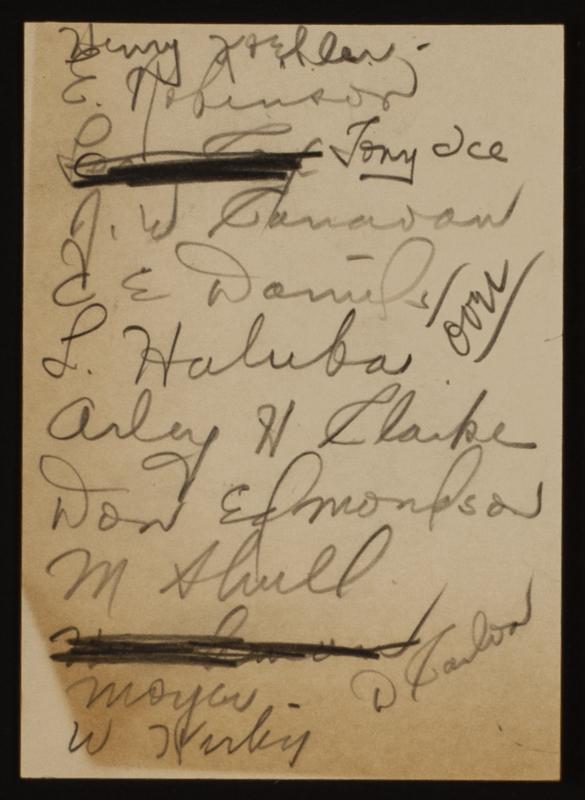 Henry Koehler -
E. Robinson
Tony Ice
J. W Canavan
E E Daniels
over
L. Haluba
Arley H Clarke
Don Edmondson
M Shull
D Carlson
Moyer -
W Kirby